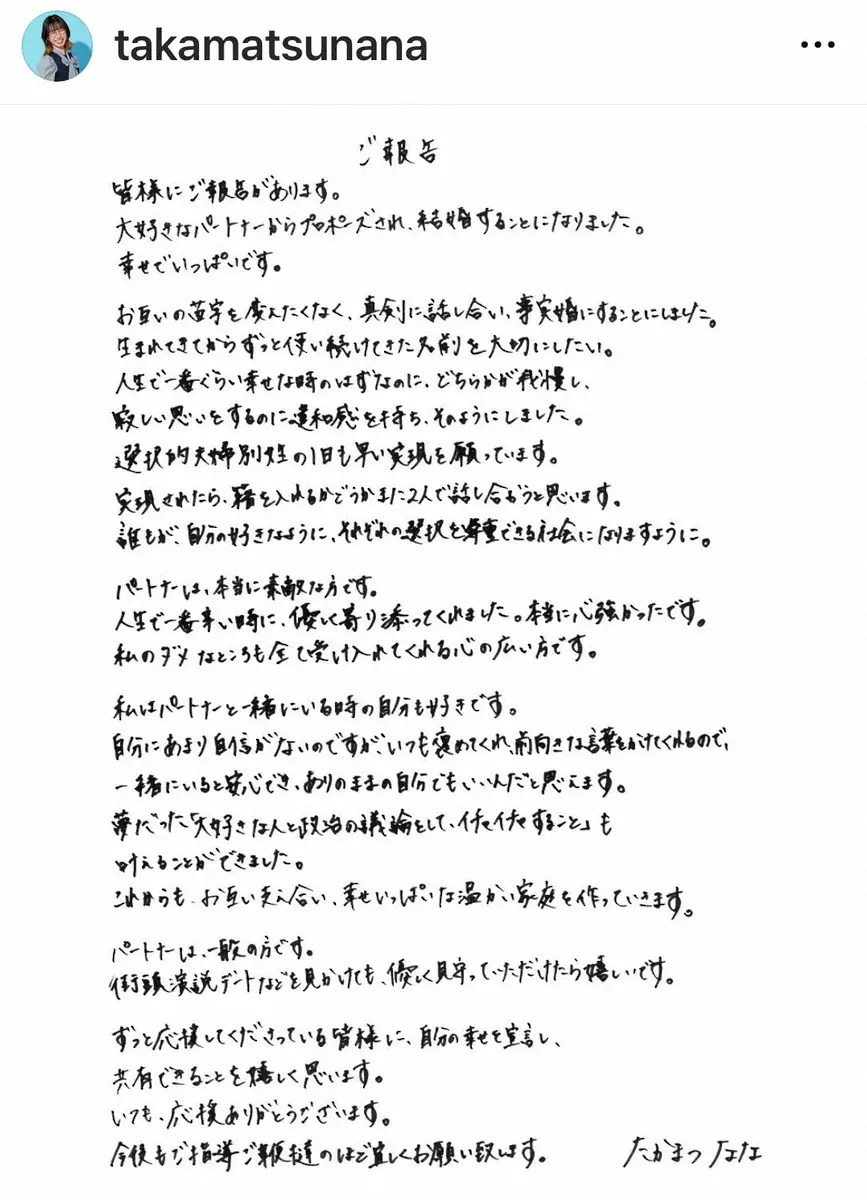 takamatsunana
ご報告
皆様にご報告があります。
大好きなパートナーからプロポーズされ、結婚することになりました。
幸せでいっぱいです。
お互いの苗字を変えたくなく、真剣に話し合い、事実婚にすることにしました。
生まれてきてからずっと使い続けてきた名前を大切にしたい。
人生で一番ぐらい幸せな時のはずなのに、どちらかが我慢し、
寂しい思いをするのに違和感を持ち、そのようにしました。
選択的夫婦別姓の1日も早い実現を願っています。
実現されたら、籍を入れるかどうかまた2人で話し合おうと思います。
誰もが、自分の好きなように、それぞれの選択を尊重できる社会になりますように。
パートナーは、本当に素敵な方です。
人生で一番辛い時に、優しく寄り添ってくれました。本当に心強かったです。
私のダメなところも全て受け入れてくれる心の広い方です。
私はパートナーと一緒にいる時の自分も好きです。
自分にあまり自信がないのですが、いつも褒めてくれ、前向きな言葉をかけてくれるので、
一緒にいると安心でき、ありのままの自分でもいいんだと思えます。
夢だった「大好きな人と政治の議論をして、イチャイチャすること」も
叶えることができました。
これからも、お互い支え合い、幸せいっぱいな温かい家庭を作っていきます。
パートナーは、一般の方です。
街頭演説デートなどを見かけても、優しく見守っていただけたら嬉しいです。
ずっと応援してくださっている皆様に、自分の幸せを宣言し、
共有できることを嬉しく思います。
いつも、応援ありがとうございます。
今後もご指導ご鞭撻のほど宜しくお願い致します。 たかまつなな